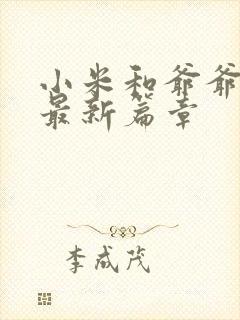 小米和爷爷
最新篇章
李成茂